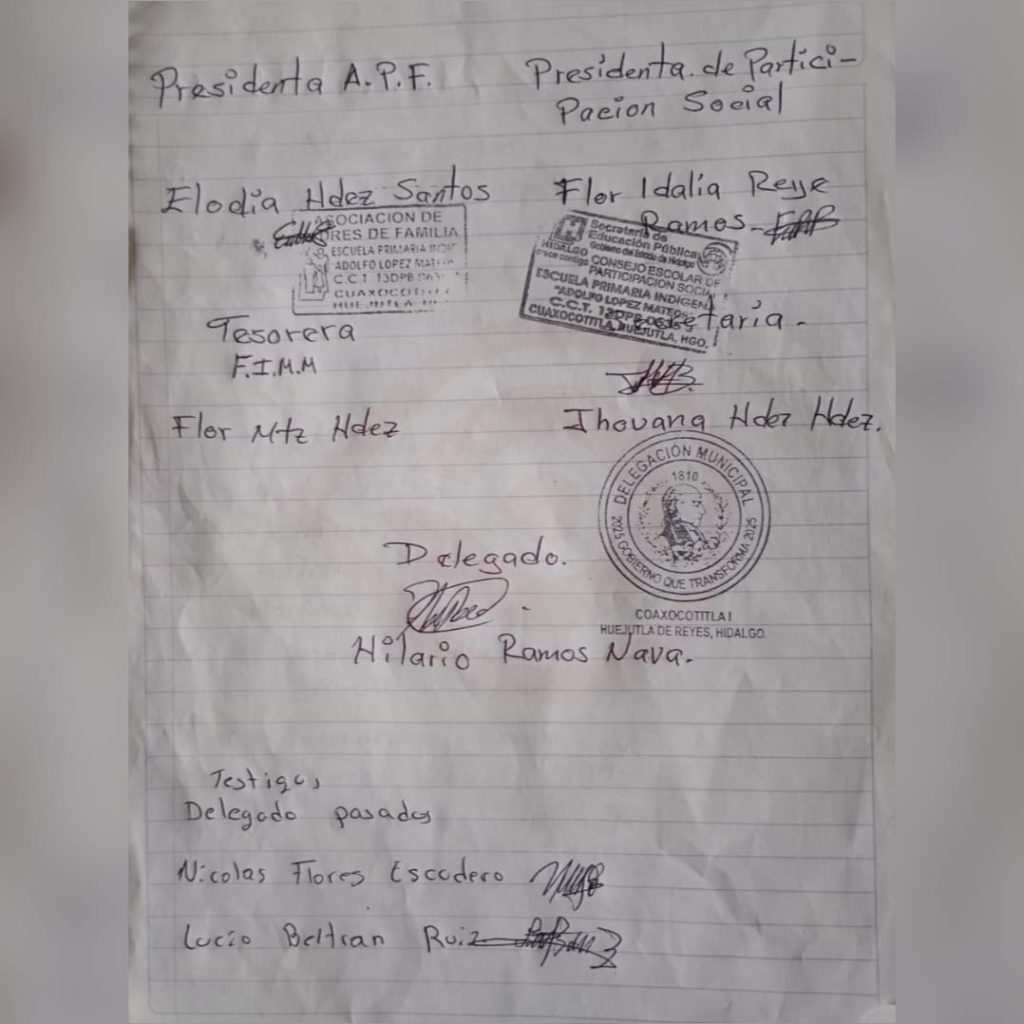 Presidenta A.P.F.
Presidenta de Partici-
Pacion Social
Elodia Hdez Santos
ASOCIACION DE
RES DE FAMILIA
ESCUELA PRIMARIA INDIG
ADOLFO LOPEZ MATEOS
C.C.T. 13DPB
CUAXOCOTITLA
HUEJUTLA
Flor Idalia Reye
Ramos
Secretaría de
Educación Pública
Gobierno del Estado de Hidalgo
HIDALGO
crece contigo
CONSEJO ESCOLAR DE
PARTICIPACIÓN SOCIAL
ESCUELA PRIMARIA INDIGENA
"ADOLFO LOPEZ MATEOS"
C.C.T. 13DPB
CUAXOCOTITLA, HUEJUTLA, HGO.
Tesorera
F.I.M.M
Flor Mtz Hdez
Secretaria.
Jhovana Hdez Hdez.
DELEGACIÓN MUNICIPAL
1810
2025 GOBIERNO QUE TRANSFORMA 2025
COAXOCOTITLA I
HUEJUTLA DE REYES, HIDALGO.
Delegado.
Hilario Ramos Nava.
Testigos
Delegado pasados
Nicolas Flores Escudero
Lucio Beltran Ruiz